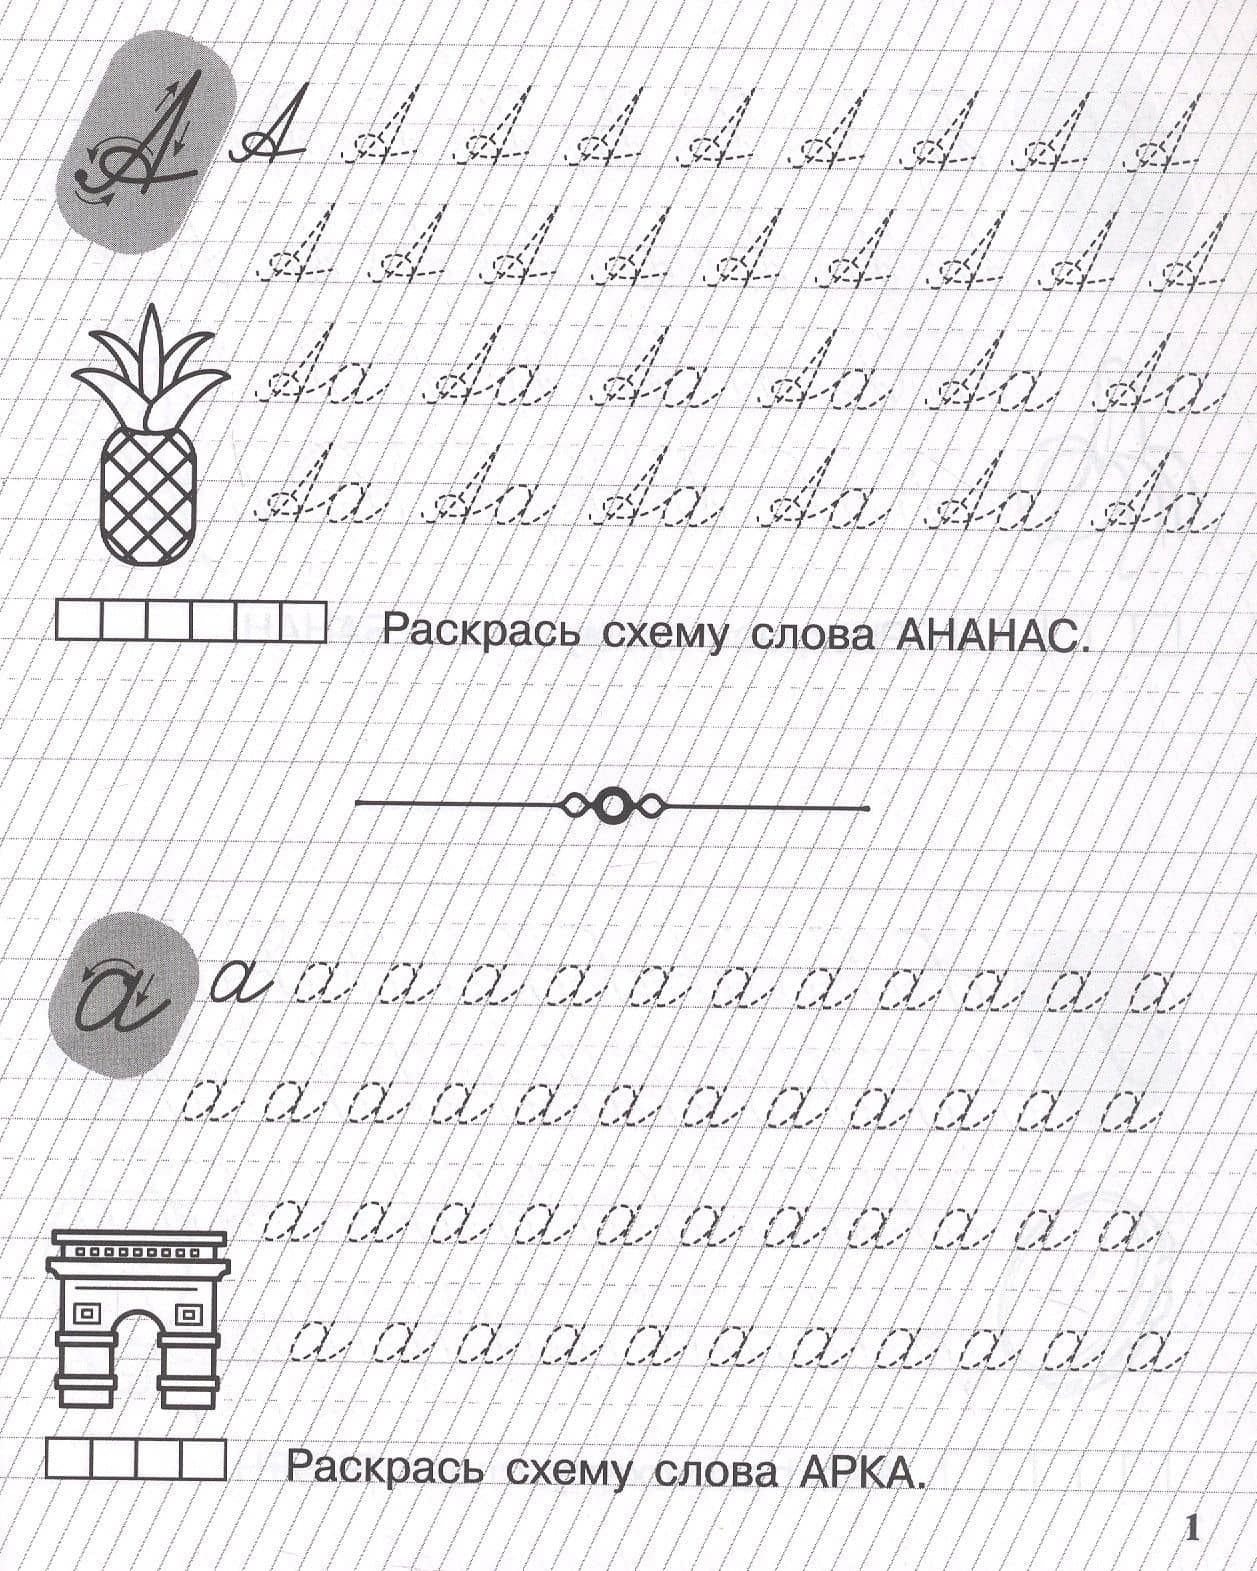 А А А А А А А А А А
А А А А А А А А А
Аа Аа Аа Аа Аа Аа
Аа Аа Аа Аа Аа Аа
Раскрась схему слова АНАНАС.
а а а а а а а а а а а а а
а а а а а а а а а а а а
а а а а а а а а а а а
а а а а а а а а а а а
Раскрась схему слова АРКА.
1